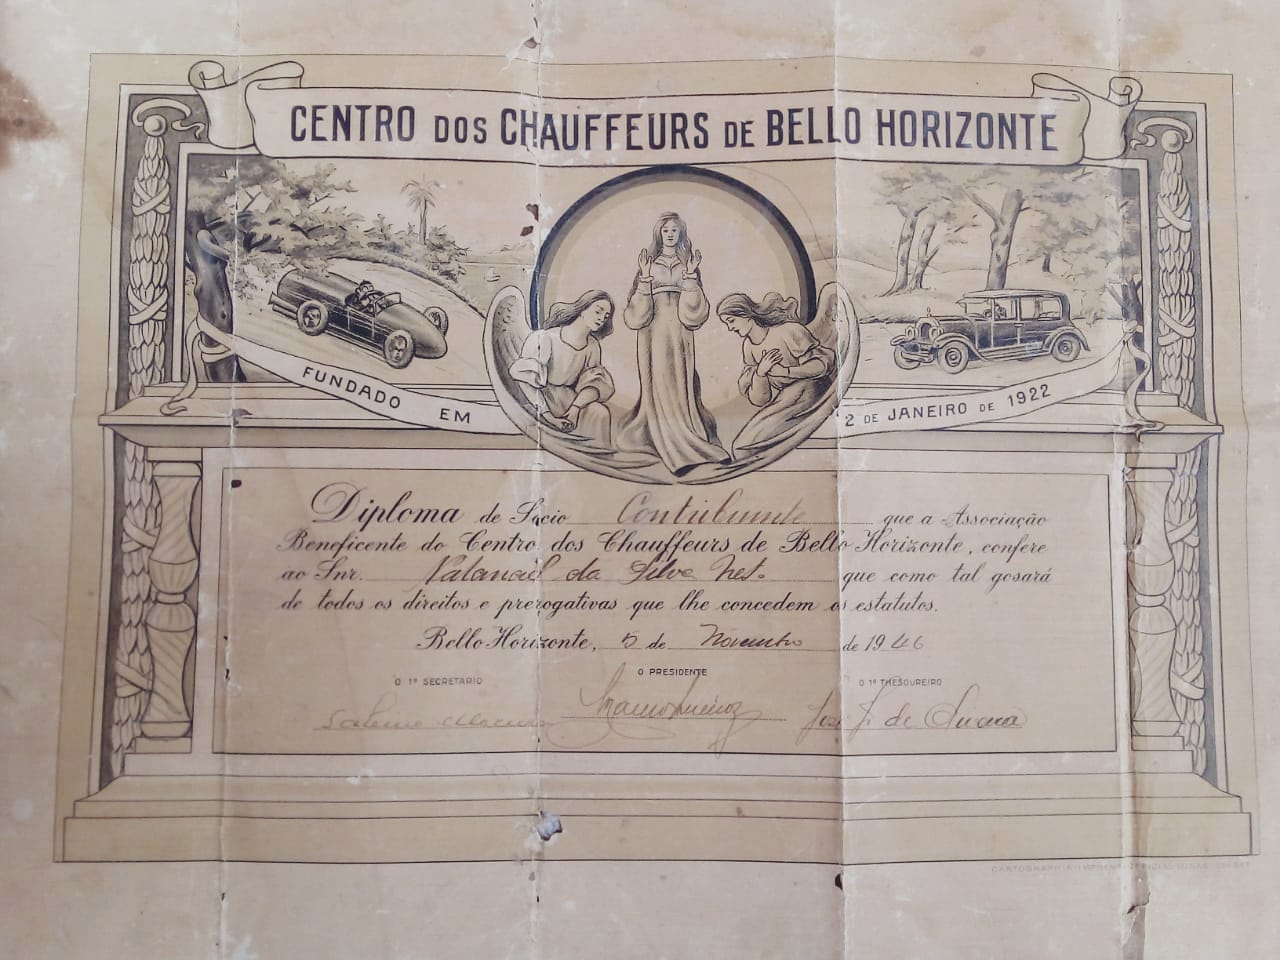 CENTRO DOS CHAUFFEURS DE BELLO HORIZONTE
FUNDADO EM 2 DE JANEIRO DE 1922
Diploma de Socio Contribuinte que a Associação
Beneficente do Centro dos Chauffeurs de Bello Horizonte, confere
ao Snr. da Silva que como tal gosará
de todos os direitos e prerogativas que lhe concedem os estatutos.
Bello Horizonte, 5 de Novembro de 1946
O 1º SECRETARIO O PRESIDENTE O 1º THESOUREIRO
José de